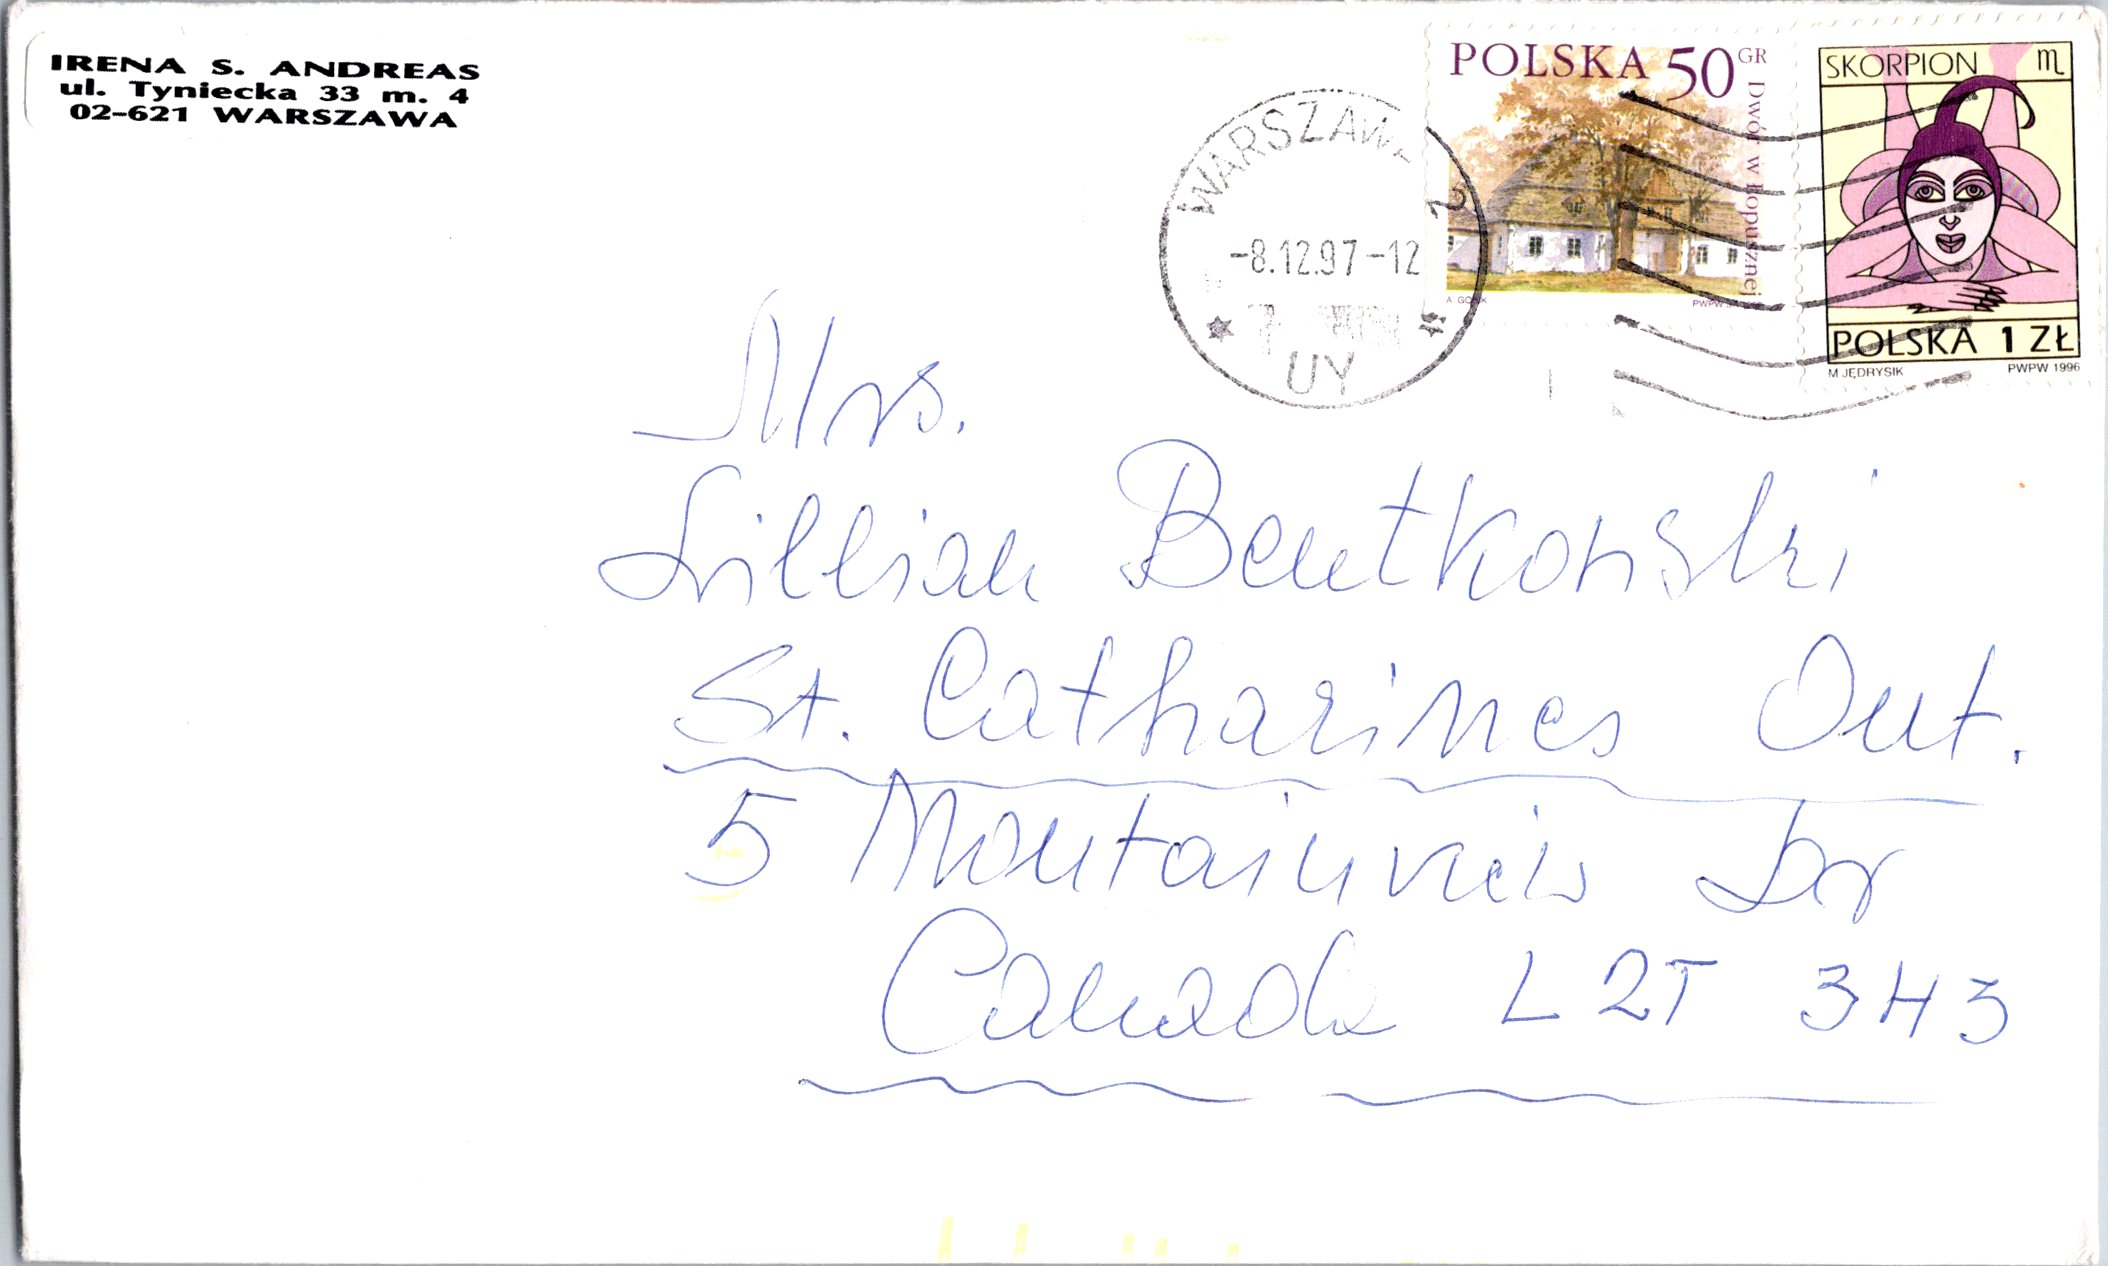 IRENA S. ANDREAS
ul. Tyniecka 33 m. 4
02-621 WARSZAWA
WARSZAWA 2
-8.12.97-12
UY
POLSKA 50 GR
Dwór w Łopusznej
PWPW
SKORPION ♏
POLSKA 1 ZŁ
M JĘDRYSIK PWPW 1996
Mrs.
Lillian Bentkowski
St. Catharines Ont.
5 Mountainview Dr
Canada L2T 3H3